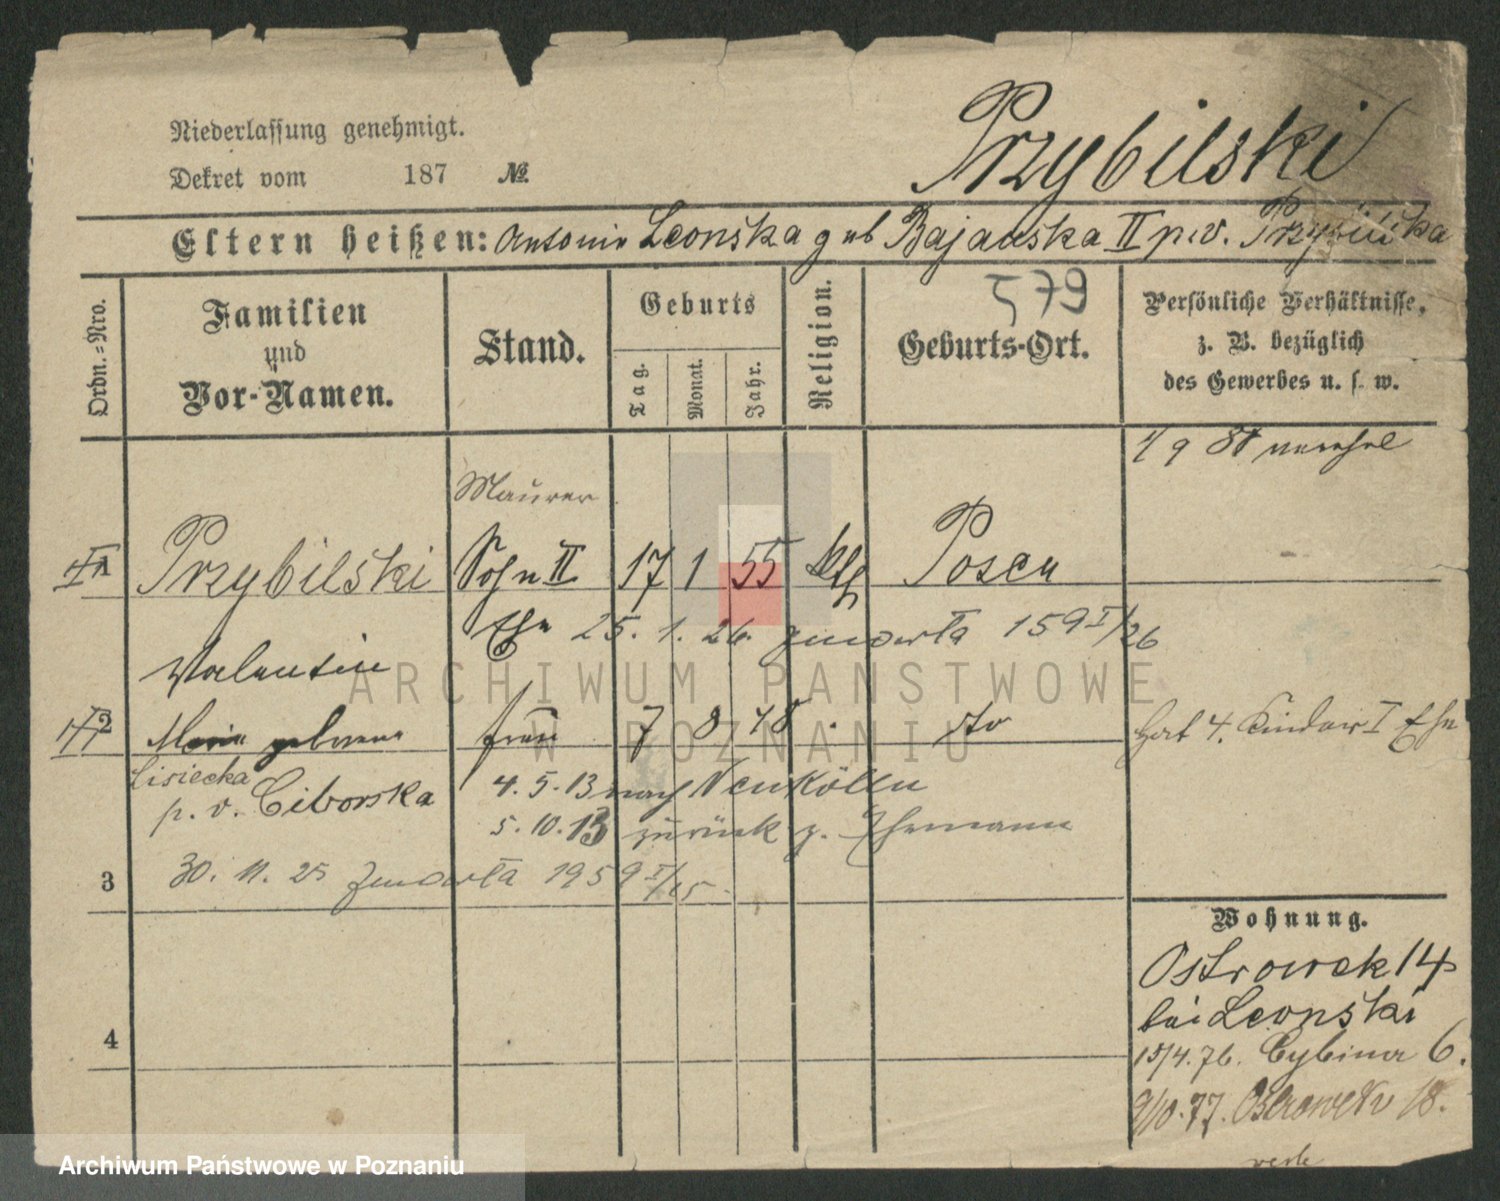 Niederlassung genehmigt.
Dekret vom 187 No.
Przybilski
Eltern heißen: Antonie Leonska geb Bajanska II p.v. Przybilska
579
Ordn.=Nro.
Familien
und
Vor-Namen.
Stand.
Geburts
Tag.
Monat.
Jahr.
Religion.
Geburts-Ort.
Persönliche Verhältnisse,
z. B. bezüglich
des Gewerbes u. s. w.
1/9 81
Maurer
1 Przybilski Sohn II 17 1 55 kth Posen
Ehe 25. 1. 26. zmarła 159 I/26
Valentin
2 Maria geborene Frau 7 8 48 dto hat 4. Kinder I Ehe
Lisiecka
p. v. Ciborska
4. 5. 13 nach Neukölln
5. 10. 13 zurück z. Ehemann
3 30. 11. 25 zmarła 1959 I/25
Wohnung.
Ostrowek 14
bei Leonski
4
15/4. 76. Cybina 6.
9/10. 77. Ostrowek 18.
ARCHIWUM PAŃSTWOWE
W POZNANIU
Archiwum Państwowe w Poznaniu